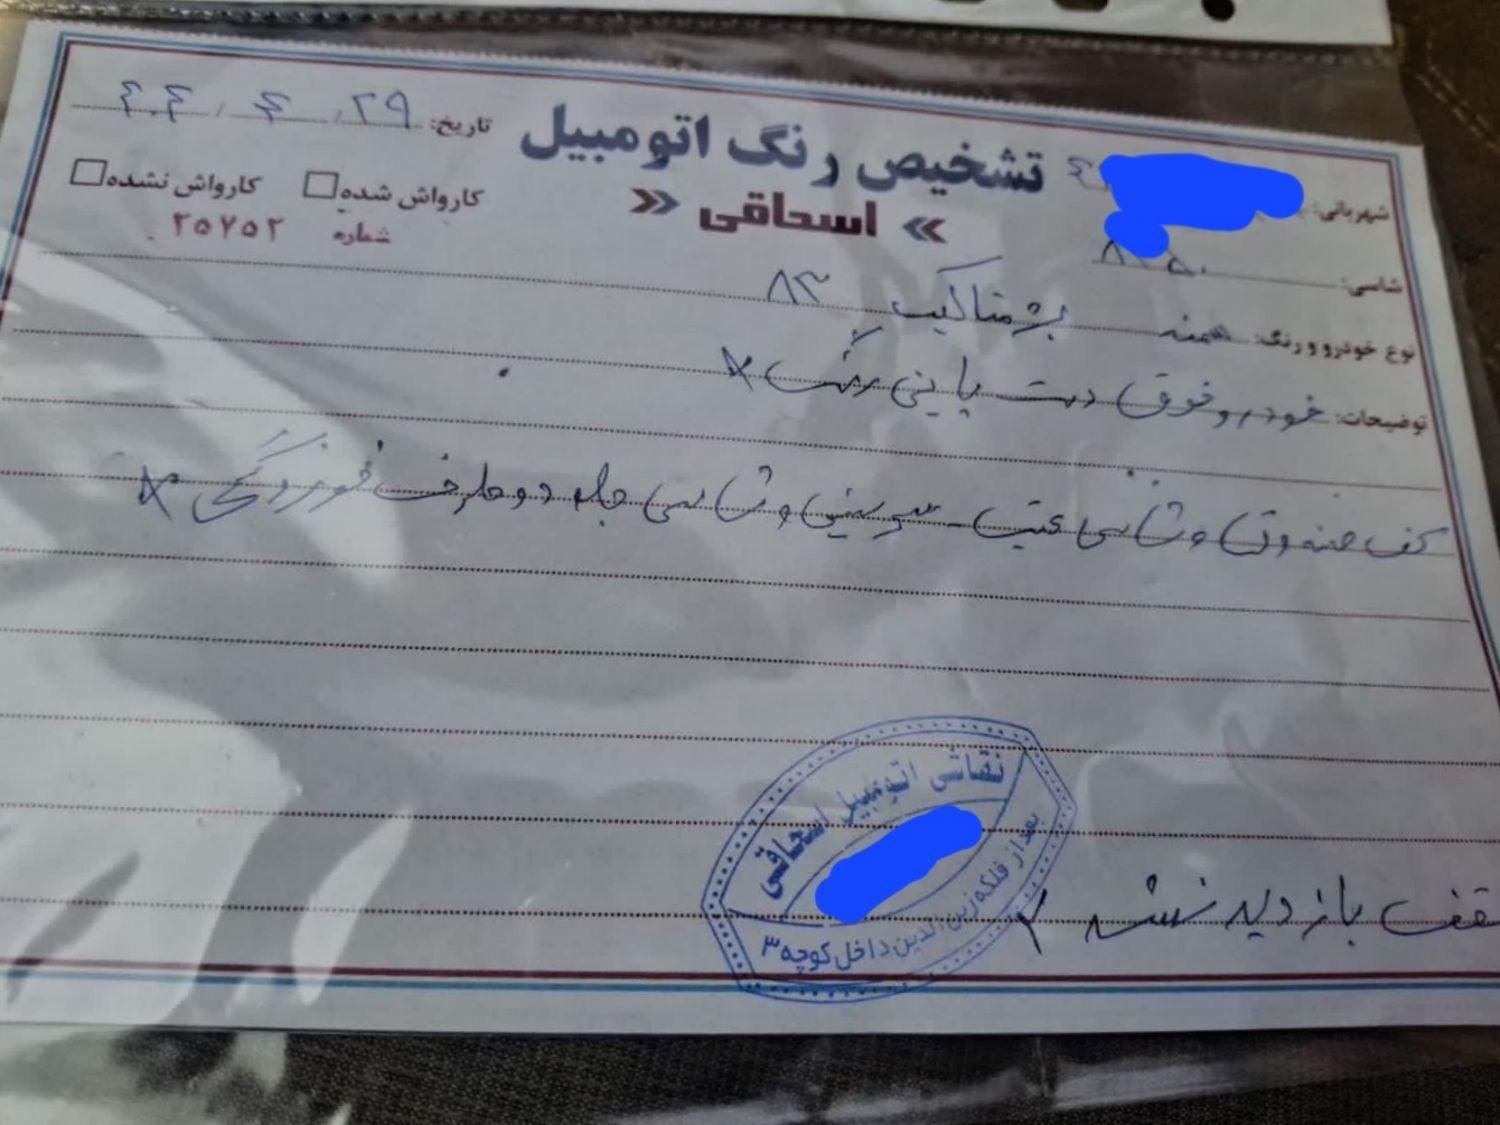 تشخیص رنگ اتومبیل
» اسحاقی «
تاریخ: ۲۹ / ۴ / ۴۰۴
کارواش شده کارواش نشده
شماره ۲۵۷۵۲
شهربانی:
شاسی:
نوع خودرو و رنگ: سمند ۸۳
توضیحات: خودرو فوق دست پایینی رنگ
کف صندوق و شاسی عقب سرسینی و شاسی جلو دو طرف خوردگی
سقف بازدید نشد
نقاشی اتومبیل اسحاقی
بعد از فلکه زین الدین داخل کوچه ۳